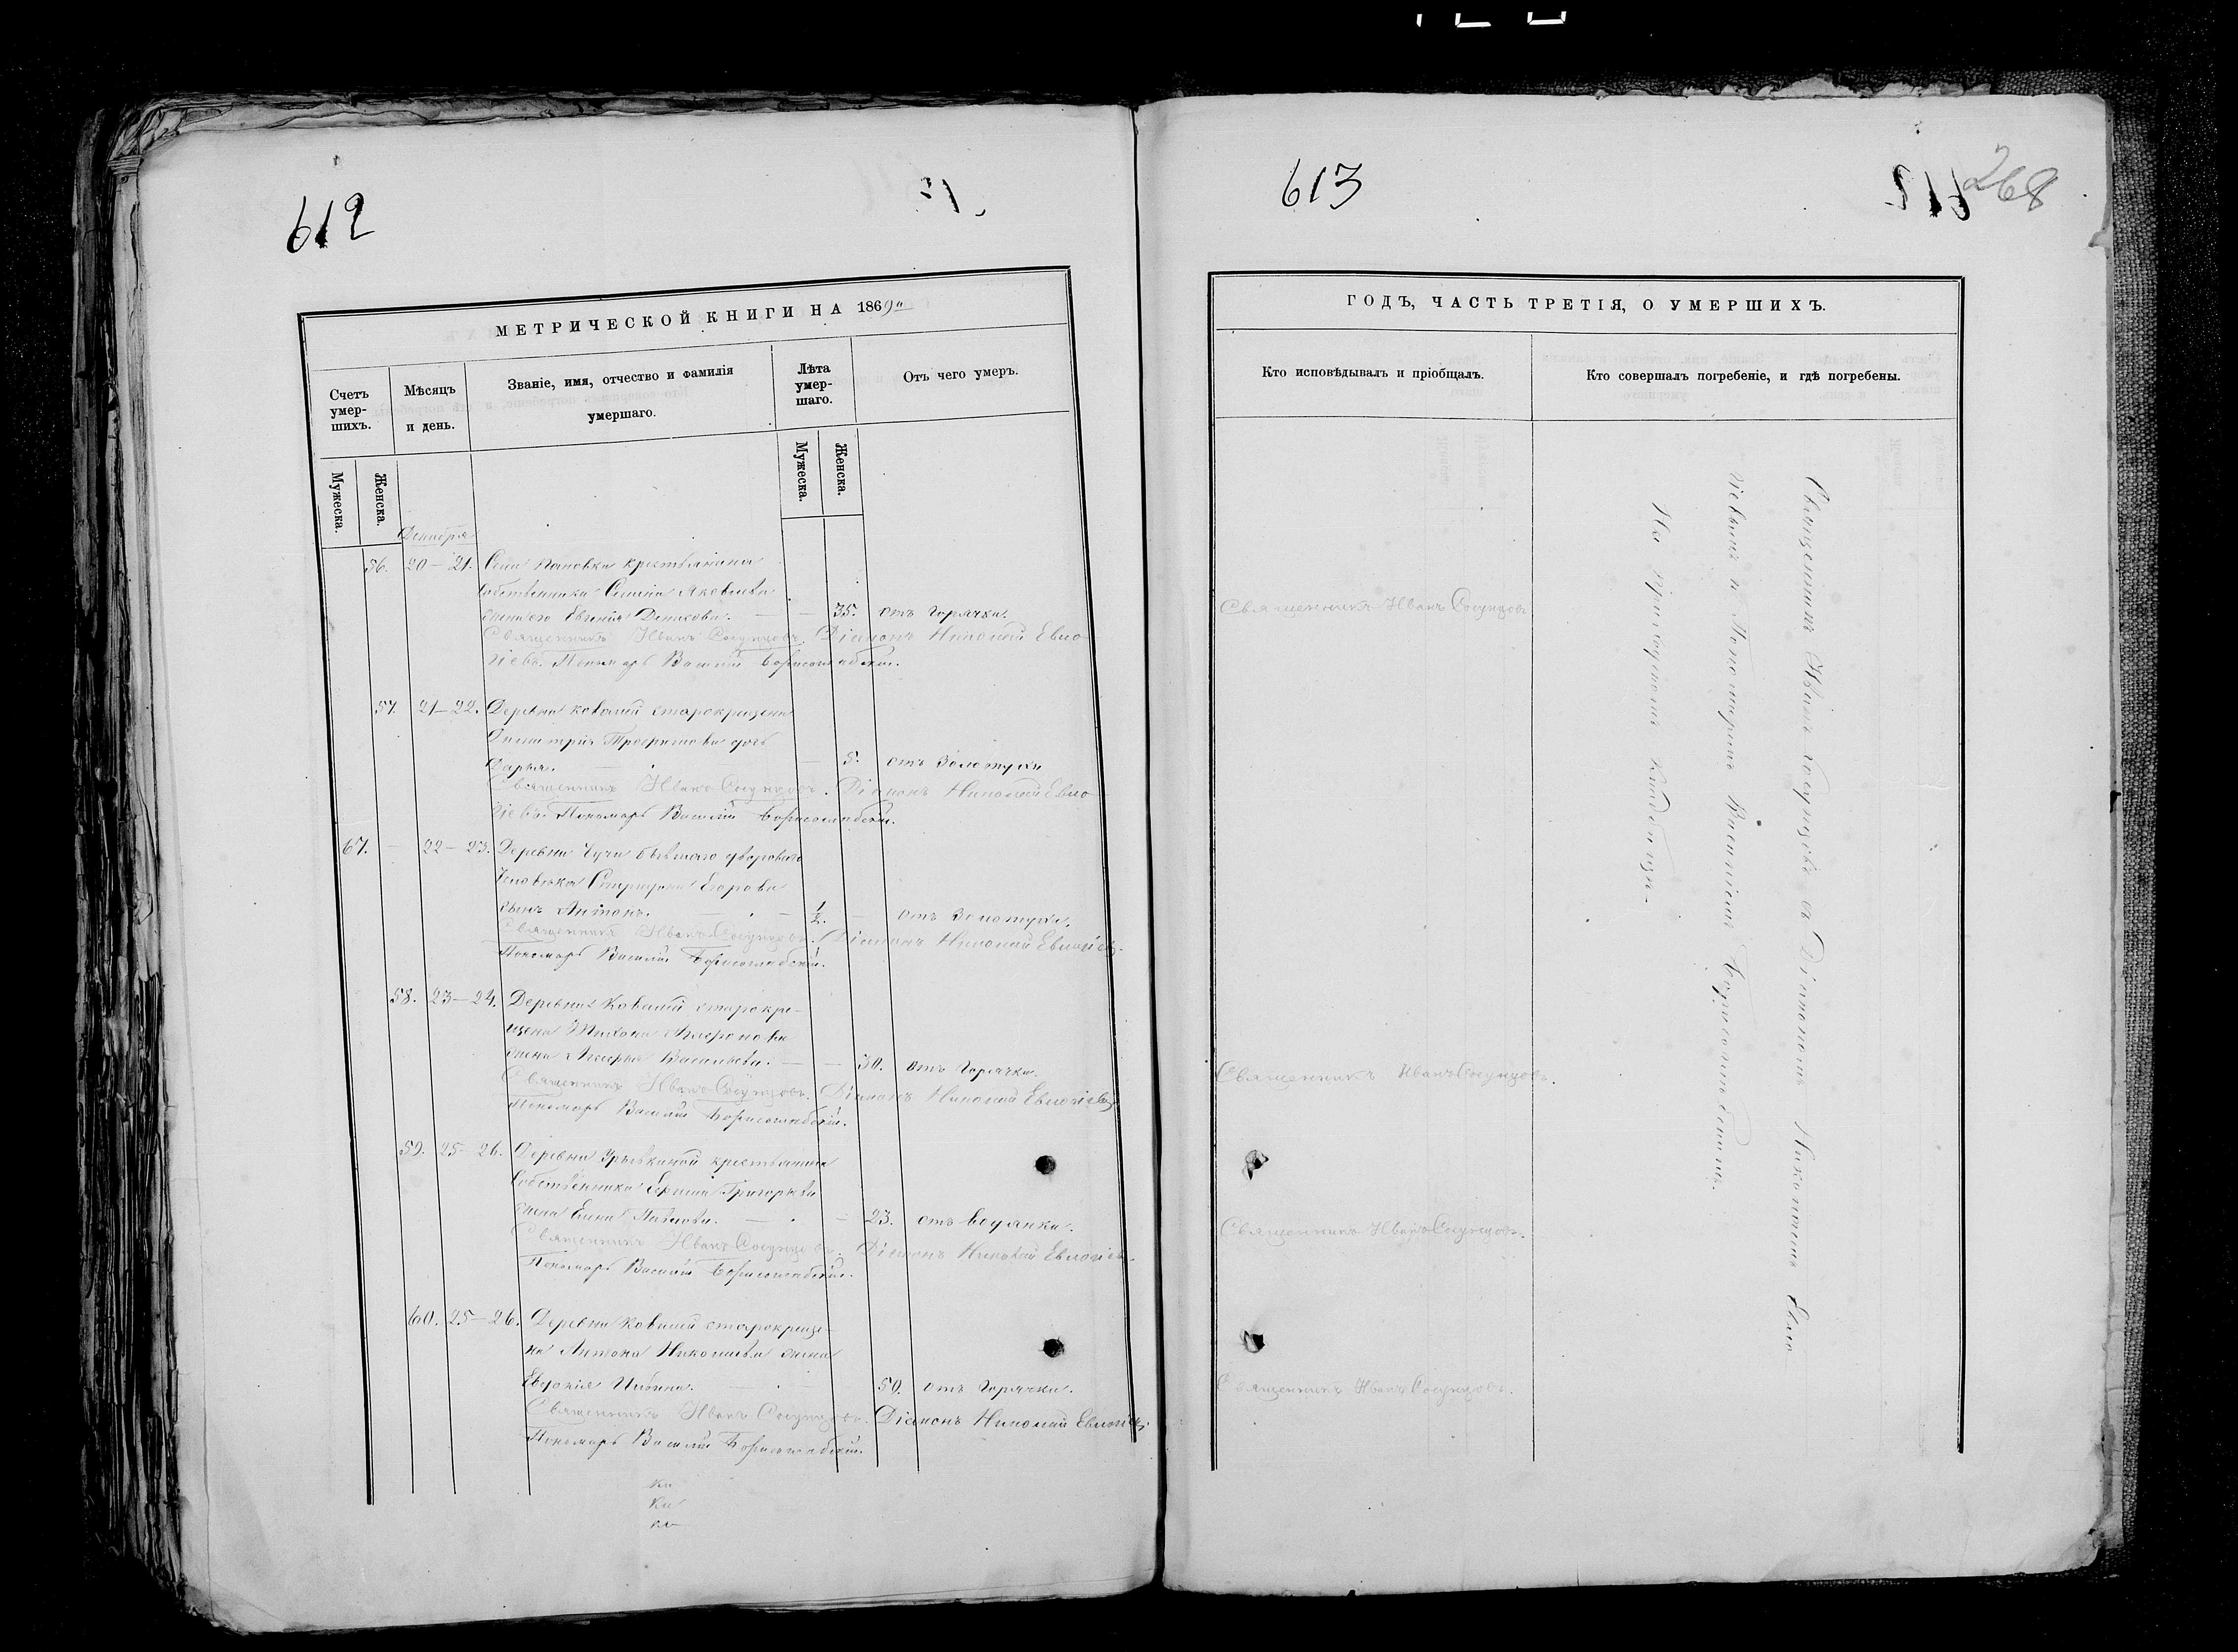 612
613
268
МЕТРИЧЕСКОЙ КНИГИ НА 1869й
Счетъ умер-шихъ.
Мѣсяцъ и день.
Званіе, имя, отчество и фамилія умершаго.
Лѣта умер-шаго.
Отъ чего умеръ.
Мужеска.
Женска.
Мужеска.
Женска.
Декабрь
56. 20–21. Села Пановки крестьянина
собственника Семена Яковлева
жена его Евгенія — 35. отъ горячки.
Священникъ Иванъ Сосунцовъ. Діаконъ Николай Евло-
гіевъ. Пономарь Василій Борисоглѣбскій.
57. 21–22. Деревни Ковалей старокрещена
Димитрія Трофимова дочь
Дарья. — 5. отъ золотухи
Священникъ Иванъ Сосунцовъ. Діаконъ Николай Евло
гіевъ. Пономарь Василій Борисоглѣбскій.
67. 22–23. Деревни Чучи бывшаго двороваго
человѣка Егорова
сынъ Антонъ. — 1/2. — отъ золотухи.
Священникъ Иванъ Сосунцовъ. Діаконъ Николай Евлогіевъ.
Пономарь Василій Борисоглѣбскій.
58. 23–24. Деревни Ковалей старокре-
щена Тихона
жена Васильева. — 30. отъ горячки.
Священникъ Иванъ Сосунцовъ. Діаконъ Николай Евлогіевъ
Пономарь Василій Борисоглѣбскій.
59. 25–26. Деревни крестьянина
собственника Григорьева
жена Елена Павлова. — 23. отъ водянки.
Священникъ Иванъ Сосунцовъ. Діаконъ Николай Евлогіевъ.
Пономарь Василій Борисоглѣбскій.
60. 25–26. Деревни Ковалей старокреще-
на Антона Николаева жена
Евфонія — 50. отъ горячки.
Священникъ Иванъ Сосунцовъ. Діаконъ Николай Евлогіевъ.
Пономарь Василій Борисоглѣбскій.
ГОДЪ, ЧАСТЬ ТРЕТІЯ, О УМЕРШИХЪ.
Кто исповѣдывалъ и пріобщалъ.
Кто совершалъ погребеніе, и гдѣ погребены.
Священникъ Иванъ Сосунцовъ
Священникъ Иванъ Сосунцовъ.
Священникъ Иванъ Сосунцовъ.
Священникъ Иванъ Сосунцовъ.
Священникъ Иванъ Сосунцовъ съ Діакономъ Николаемъ Евло
гіевымъ и Пономаремъ Василіемъ Борисоглѣбскимъ.
На приходскомъ кладбищѣ.